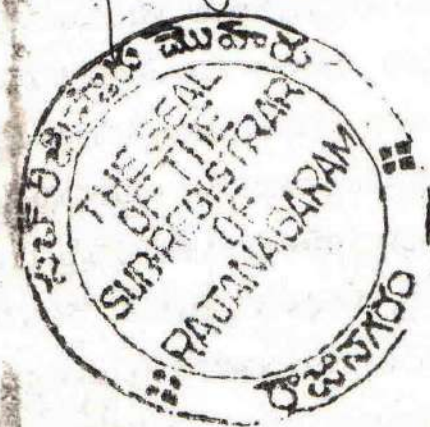 సబ్ రిజిస్ట్రారు మొహరు
THE SEAL
OF THE
SUB-REGISTRAR
OF
RAJANAGARAM
రాజానగరం